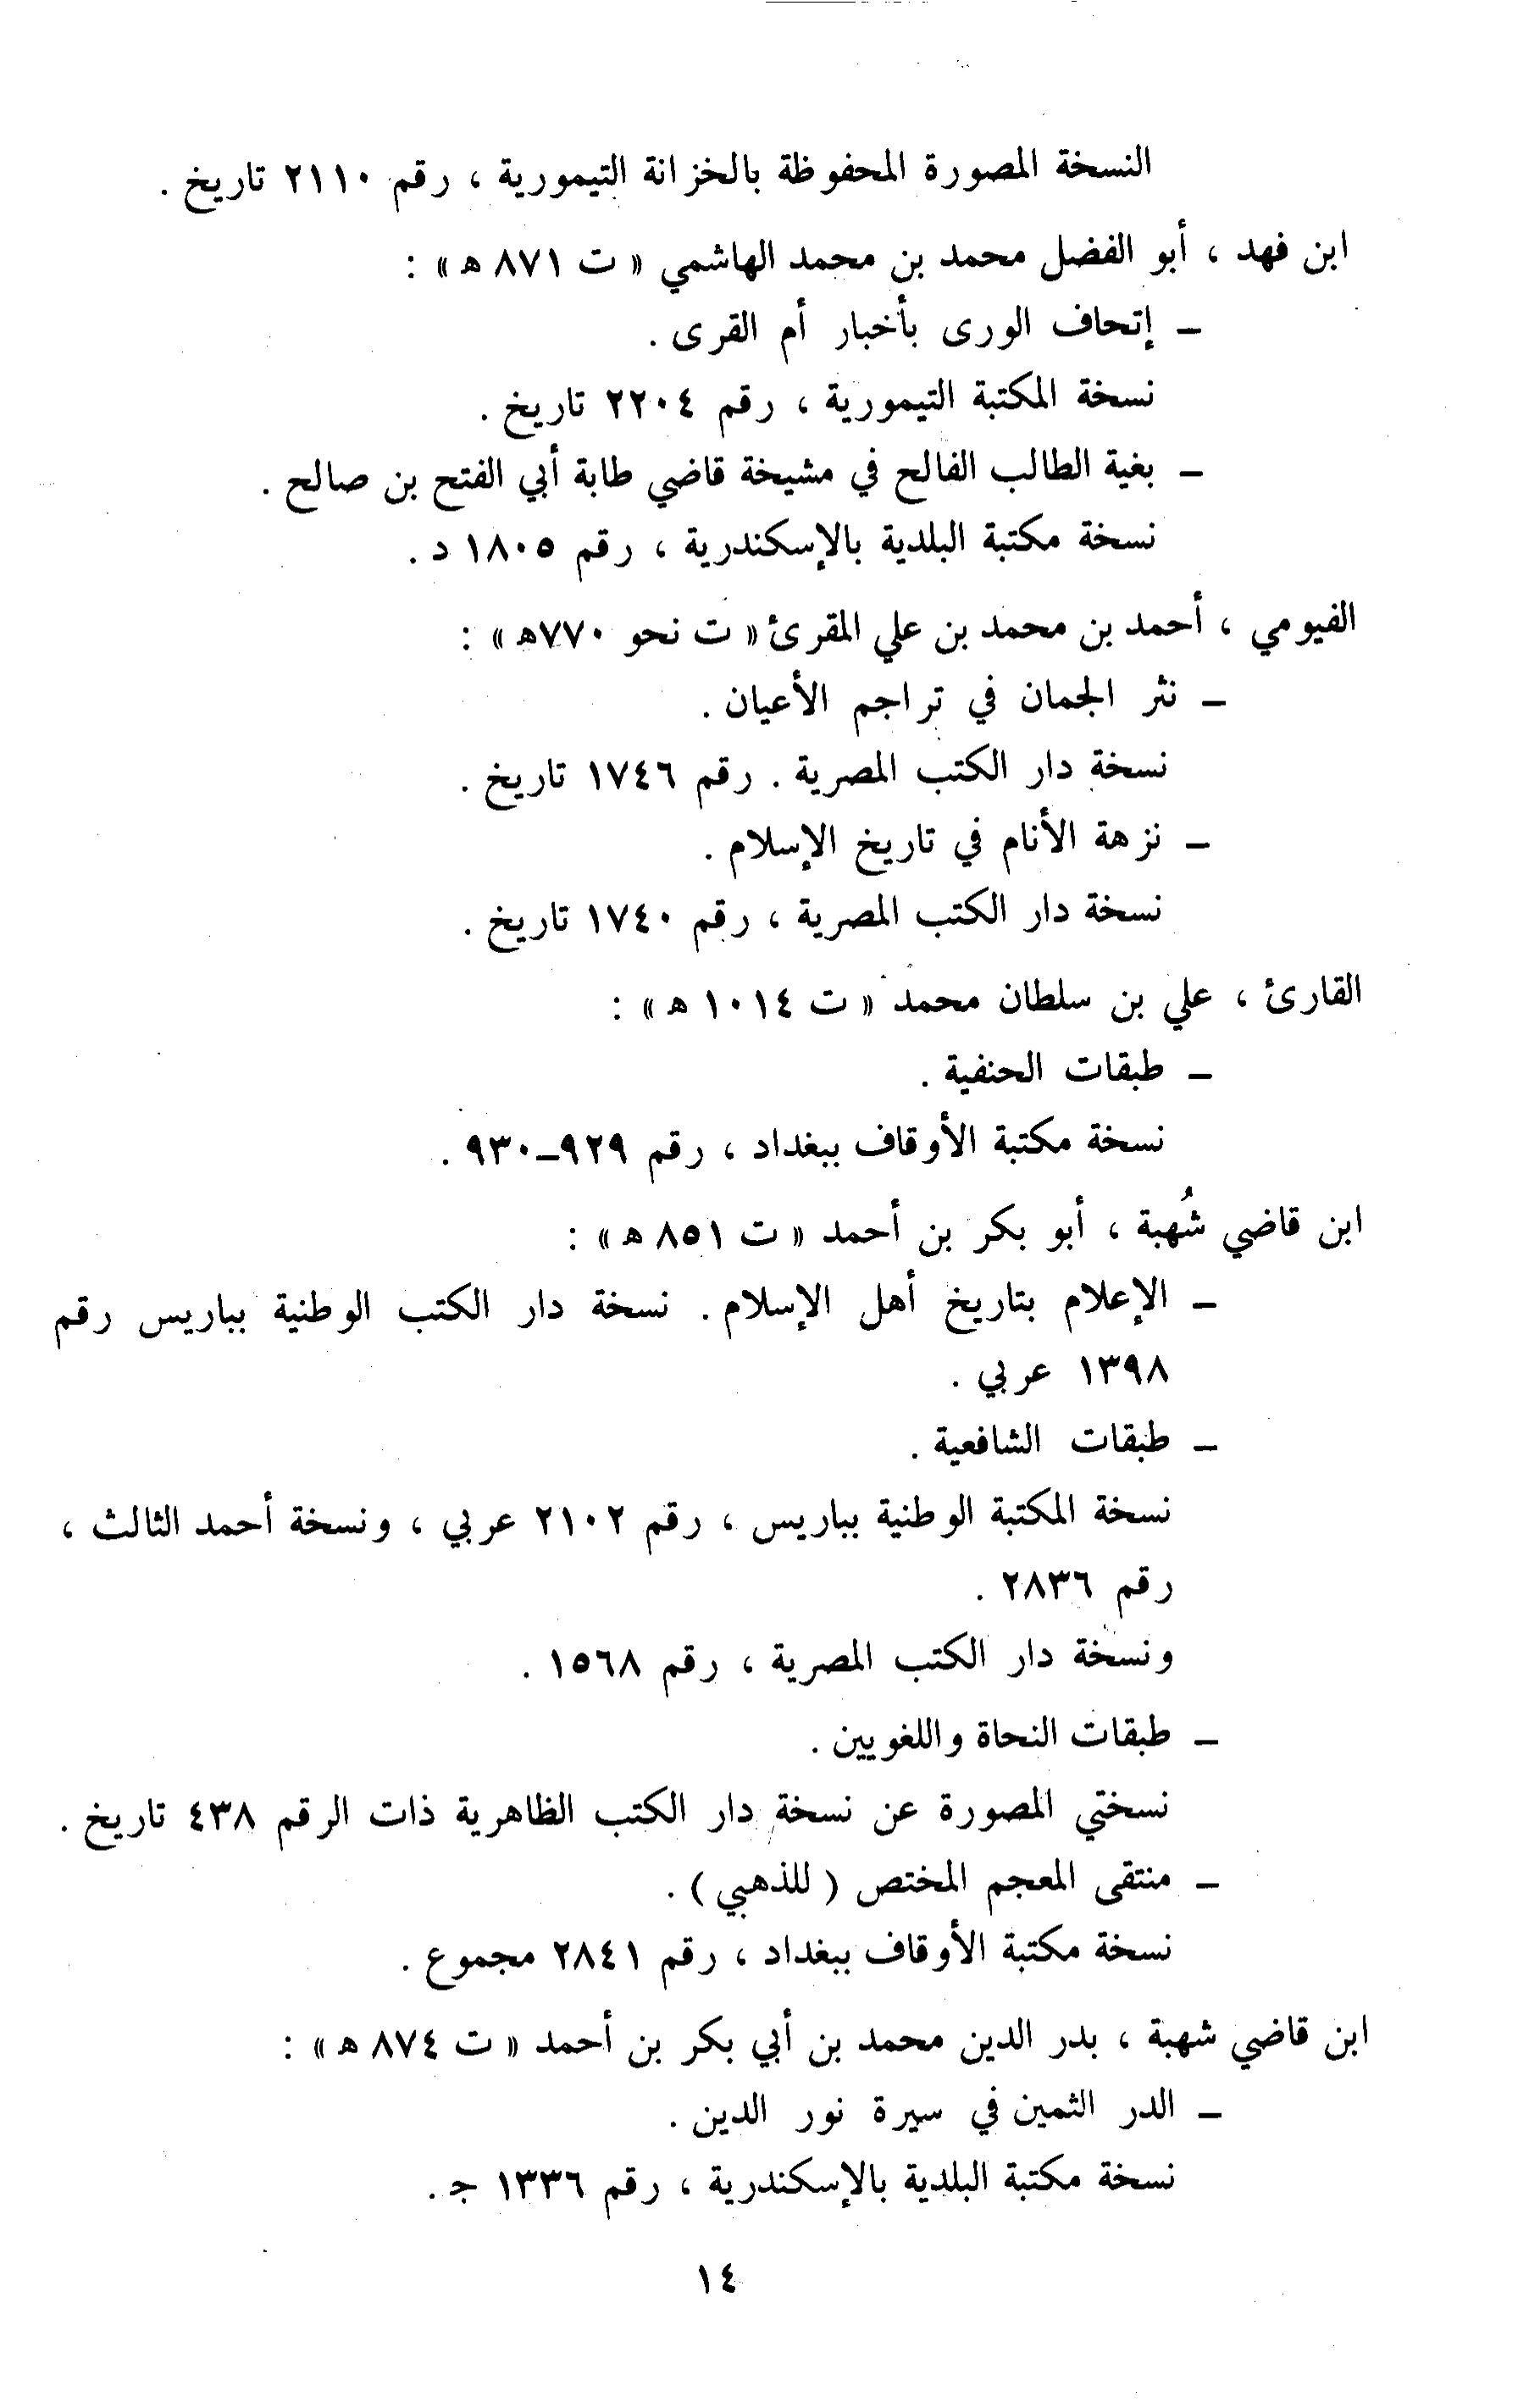 النسخة المصورة المحفوظة بالخزانة التيمورية ، رقم ٢١١٠ تاريخ .
ابن فهد ، أبو الفضل محمد بن محمد الهاشمي « ت ٨٧١ ه » :
ـ إتحاف الورى بأخبار أم القرى .
نسخة المكتبة التيمورية ، رقم ٢٢٠٤ تاريخ .
ـ بغية الطالب الفالح في مشيخة قاضي طابة أبي الفتح بن صالح .
نسخة مكتبة البلدية بالإسكندرية ، رقم ١٨٠٥ د .
الفيومي ، أحمد بن محمد بن علي المقرئ « ت نحو ٧٧٠ه » :
ـ نثر الجمان في تراجم الأعيان .
نسخة دار الكتب المصرية . رقم ١٧٤٦ تاريخ .
ـ نزهة الأنام في تاريخ الإسلام .
نسخة دار الكتب المصرية ، رقم ١٧٤٠ تاريخ .
القارئ ، علي بن سلطان محمد « ت ١٠١٤ ه » :
ـ طبقات الحنفية .
نسخة مكتبة الأوقاف ببغداد ، رقم ٩٢٩ـ٩٣٠ .
ابن قاضي شُهبة ، أبو بكر بن أحمد « ت ٨٥١ ه » :
ـ الإعلام بتاريخ أهل الإسلام . نسخة دار الكتب الوطنية بباريس رقم
١٣٩٨ عربي .
ـ طبقات الشافعية .
نسخة المكتبة الوطنية بباريس ، رقم ٢١٠٢ عربي ، ونسخة أحمد الثالث ،
رقم ٢٨٣٦ .
ونسخة دار الكتب المصرية ، رقم ١٥٦٨ .
ـ طبقات النحاة واللغويين .
نسختي المصورة عن نسخة دار الكتب الظاهرية ذات الرقم ٤٣٨ تاريخ .
ـ منتقى المعجم المختص ( للذهبي ) .
نسخة مكتبة الأوقاف ببغداد ، رقم ٢٨٤١ مجموع .
ابن قاضي شهبة ، بدر الدين محمد بن أبي بكر بن أحمد « ت ٨٧٤ ه » :
ـ الدر الثمين في سيرة نور الدين .
نسخة مكتبة البلدية بالإسكندرية ، رقم ١٣٣٦ ج .
١٤